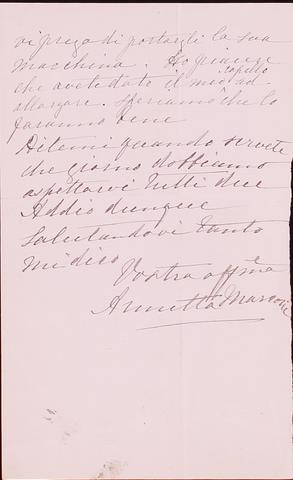 vi prega di portargli la sua
macchina. Ho piacere
che avete dato il mio capello ad
allargare. Speriamo che lo
faranno bene
Ditemi quando
che giorno dobbiamo
aspettarvi tutti due
Addio dunque
Salutandovi tanto
mi dico
Vostra affma
Annetta